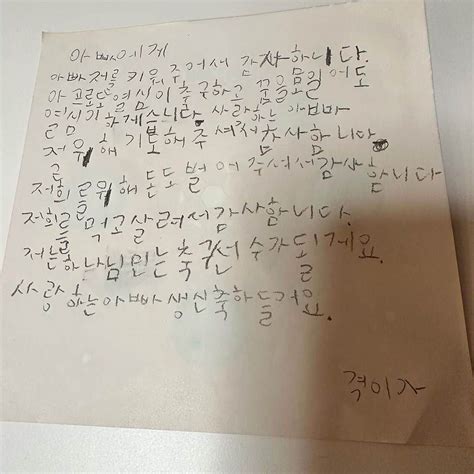 아빠에게
아빠 저를 키워 주어서 감사합니다.
아프로도 열심이 축구하고 꿈을 일에도
열심기 하게 스니다. 사랑하는 아빠
저 위해 기도해 주셔서 감사합니다
저희를 위해 돈도 벌어 주셔서 감사 합니다
저희를 먹고 살려서 감사합니다.
저는 하나님 믿는 축구선수가 될게요.
사랑하는 아빠 생신 축하 들려요.